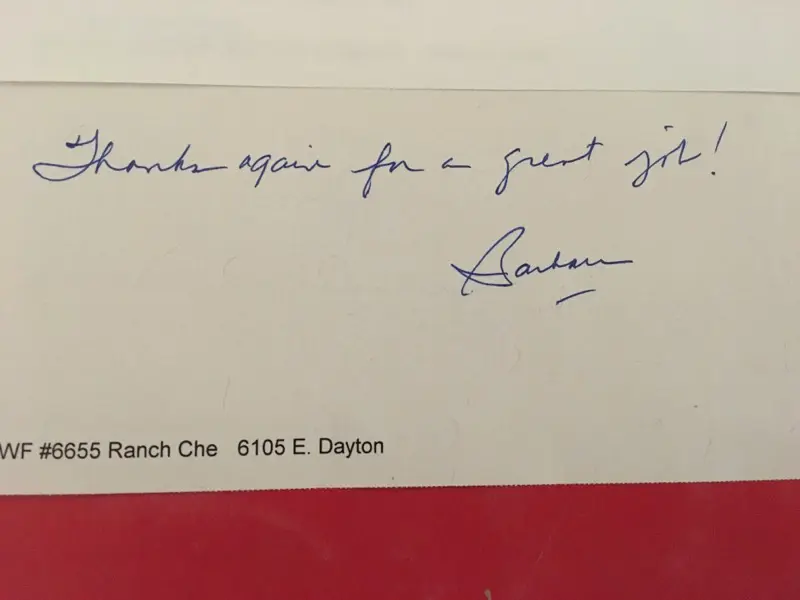 Thanks again for a great job!
Barbara
WF #6655 Ranch Che 6105 E. Dayton